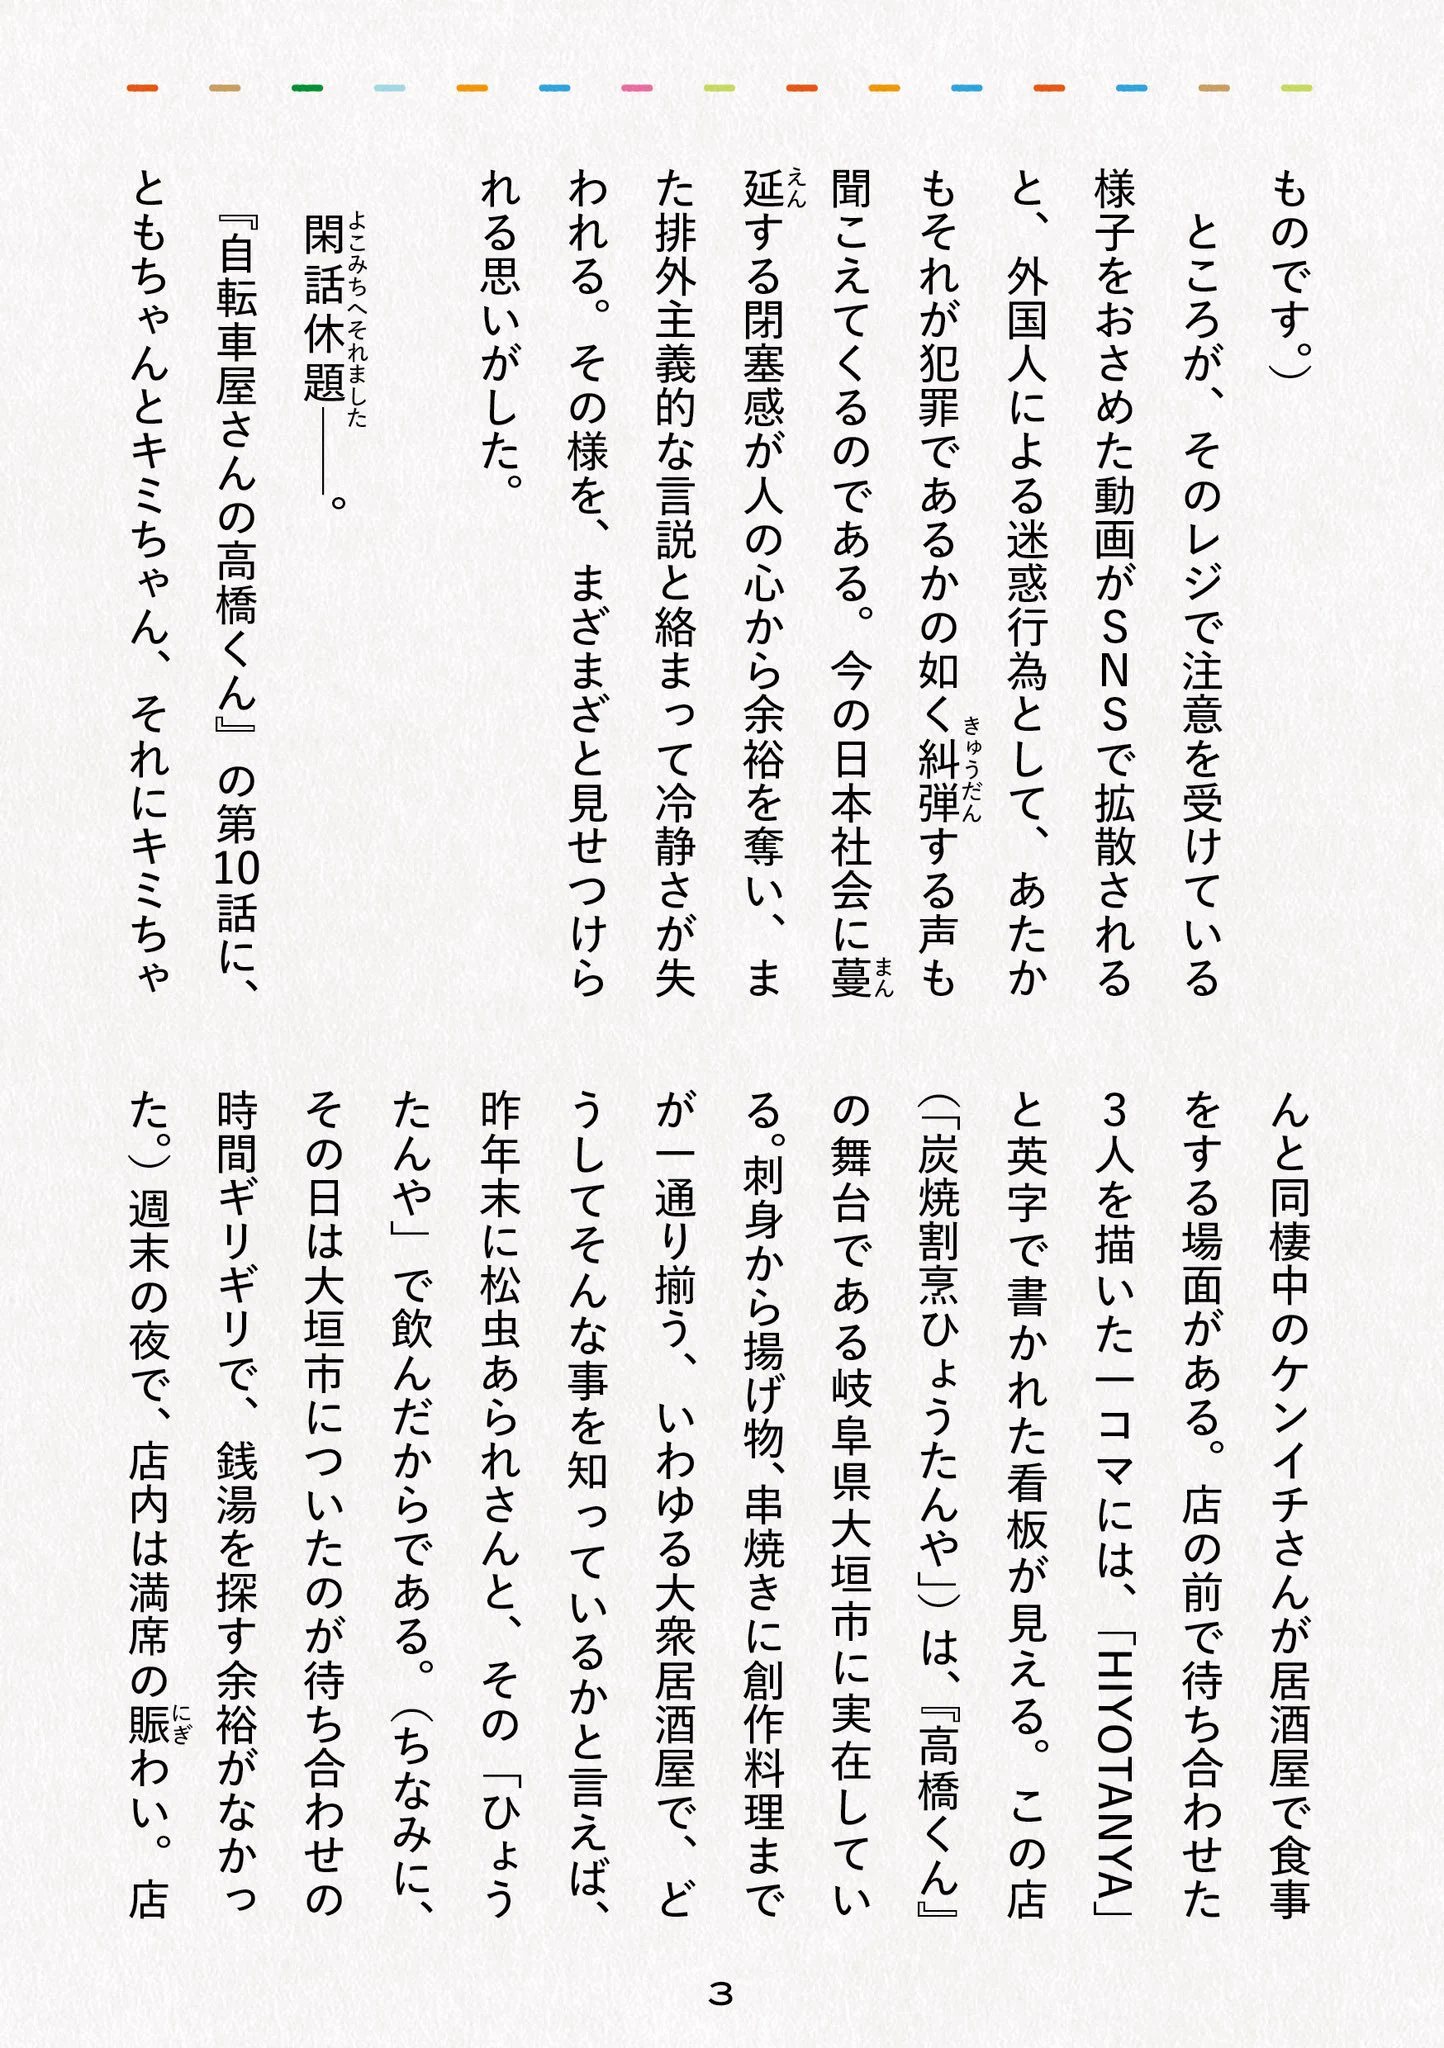 ものです。）
ところが、そのレジで注意を受けている
様子をおさめた動画がＳＮＳで拡散される
と、外国人による迷惑行為として、あたか
もそれが犯罪であるかの如く糾弾する声も
きゅうだん
聞こえてくるのである。今の日本社会に蔓
まん
延する閉塞感が人の心から余裕を奪い、ま
えん
た排外主義的な言説と絡まって冷静さが失
われる。その様を、まざまざと見せつけら
れる思いがした。
閑話休題――。
よこみちへそれました
『自転車屋さんの高橋くん』の第10話に、
ともちゃんとキミちゃん、それにキミちゃ
んと同棲中のケンイチさんが居酒屋で食事
をする場面がある。店の前で待ち合わせた
３人を描いた一コマには、「HIYOTANYA」
と英字で書かれた看板が見える。この店
（「炭焼割烹ひょうたんや」）は、『高橋くん』
の舞台である岐阜県大垣市に実在してい
る。刺身から揚げ物、串焼きに創作料理まで
が一通り揃う、いわゆる大衆居酒屋で、ど
うしてそんな事を知っているかと言えば、
昨年末に松虫あられさんと、その「ひょう
たんや」で飲んだからである。（ちなみに、
その日は大垣市についたのが待ち合わせの
時間ギリギリで、銭湯を探す余裕がなかっ
た。）週末の夜で、店内は満席の賑わい。店
にぎ
3